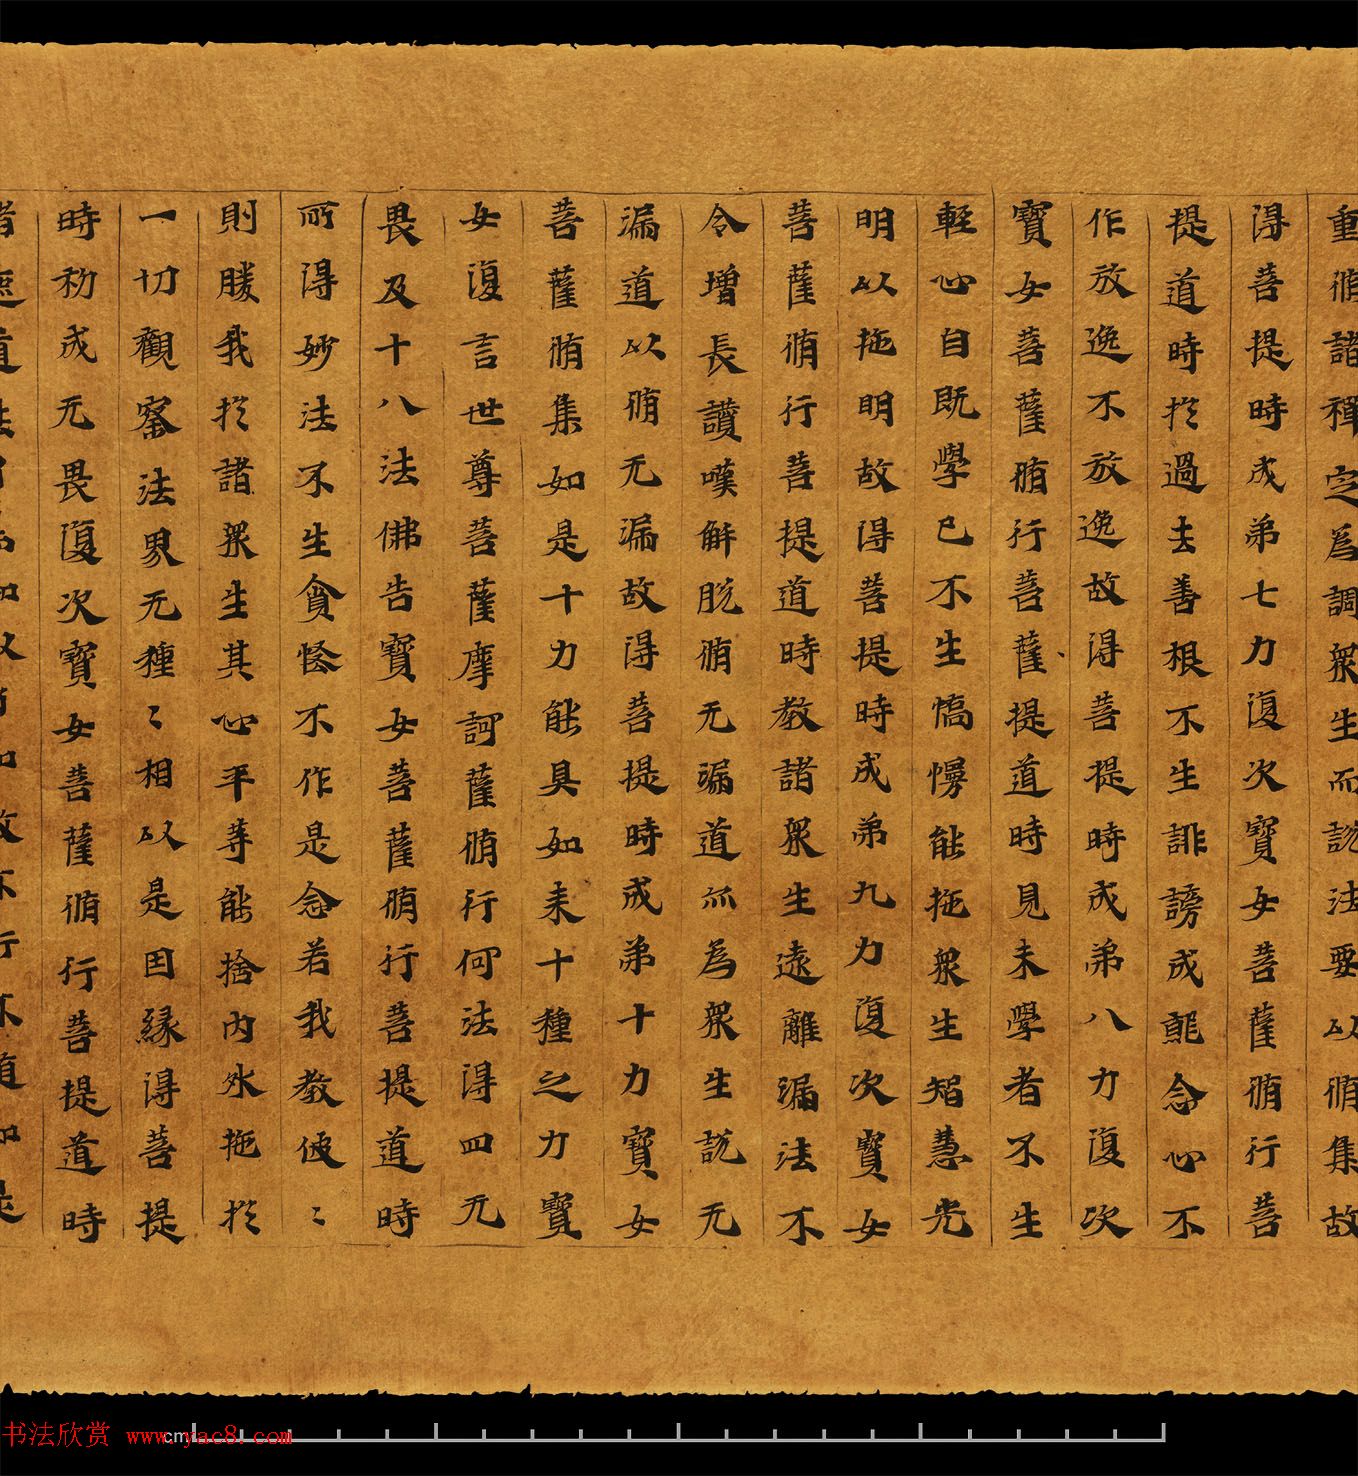 重脩諸禪定為調衆生而説法要以脩集故
得菩提時成弟七力復次寶女菩薩脩行菩
提道時於過去善根不生誹謗成就念心不
作放逸不放逸故得菩提時成弟八力復次
寶女菩薩脩行菩薩提道時見未學者不生
輕心自既學已不生憍慢能施衆生智慧光
明以施明故得菩提時成弟九力復次寶女
菩薩脩行菩提道時教諸衆生遠離漏法不
令增長讚嘆解脱脩无漏道亦為衆生説无
漏道以脩无漏故得菩提時成弟十力寶女
菩薩脩集如是十力能具如来十種之力寶
女復言世尊菩薩摩訶薩脩行何法得四无
畏及十八法佛告寶女菩薩脩行菩提道時
所得妙法不生貪悋不作是念若我教彼〻
則勝我於諸衆生其心平等能捨内外施於
一切觀察法界无種〻相以是因緣得菩提
時初成无畏復次寶女菩薩脩行菩提道時
cm
书法欣赏 www.yac8.com